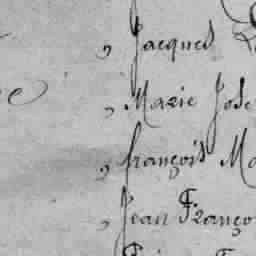 , Jacques
, Marie Jose
, françois Ma
, Jean Franço